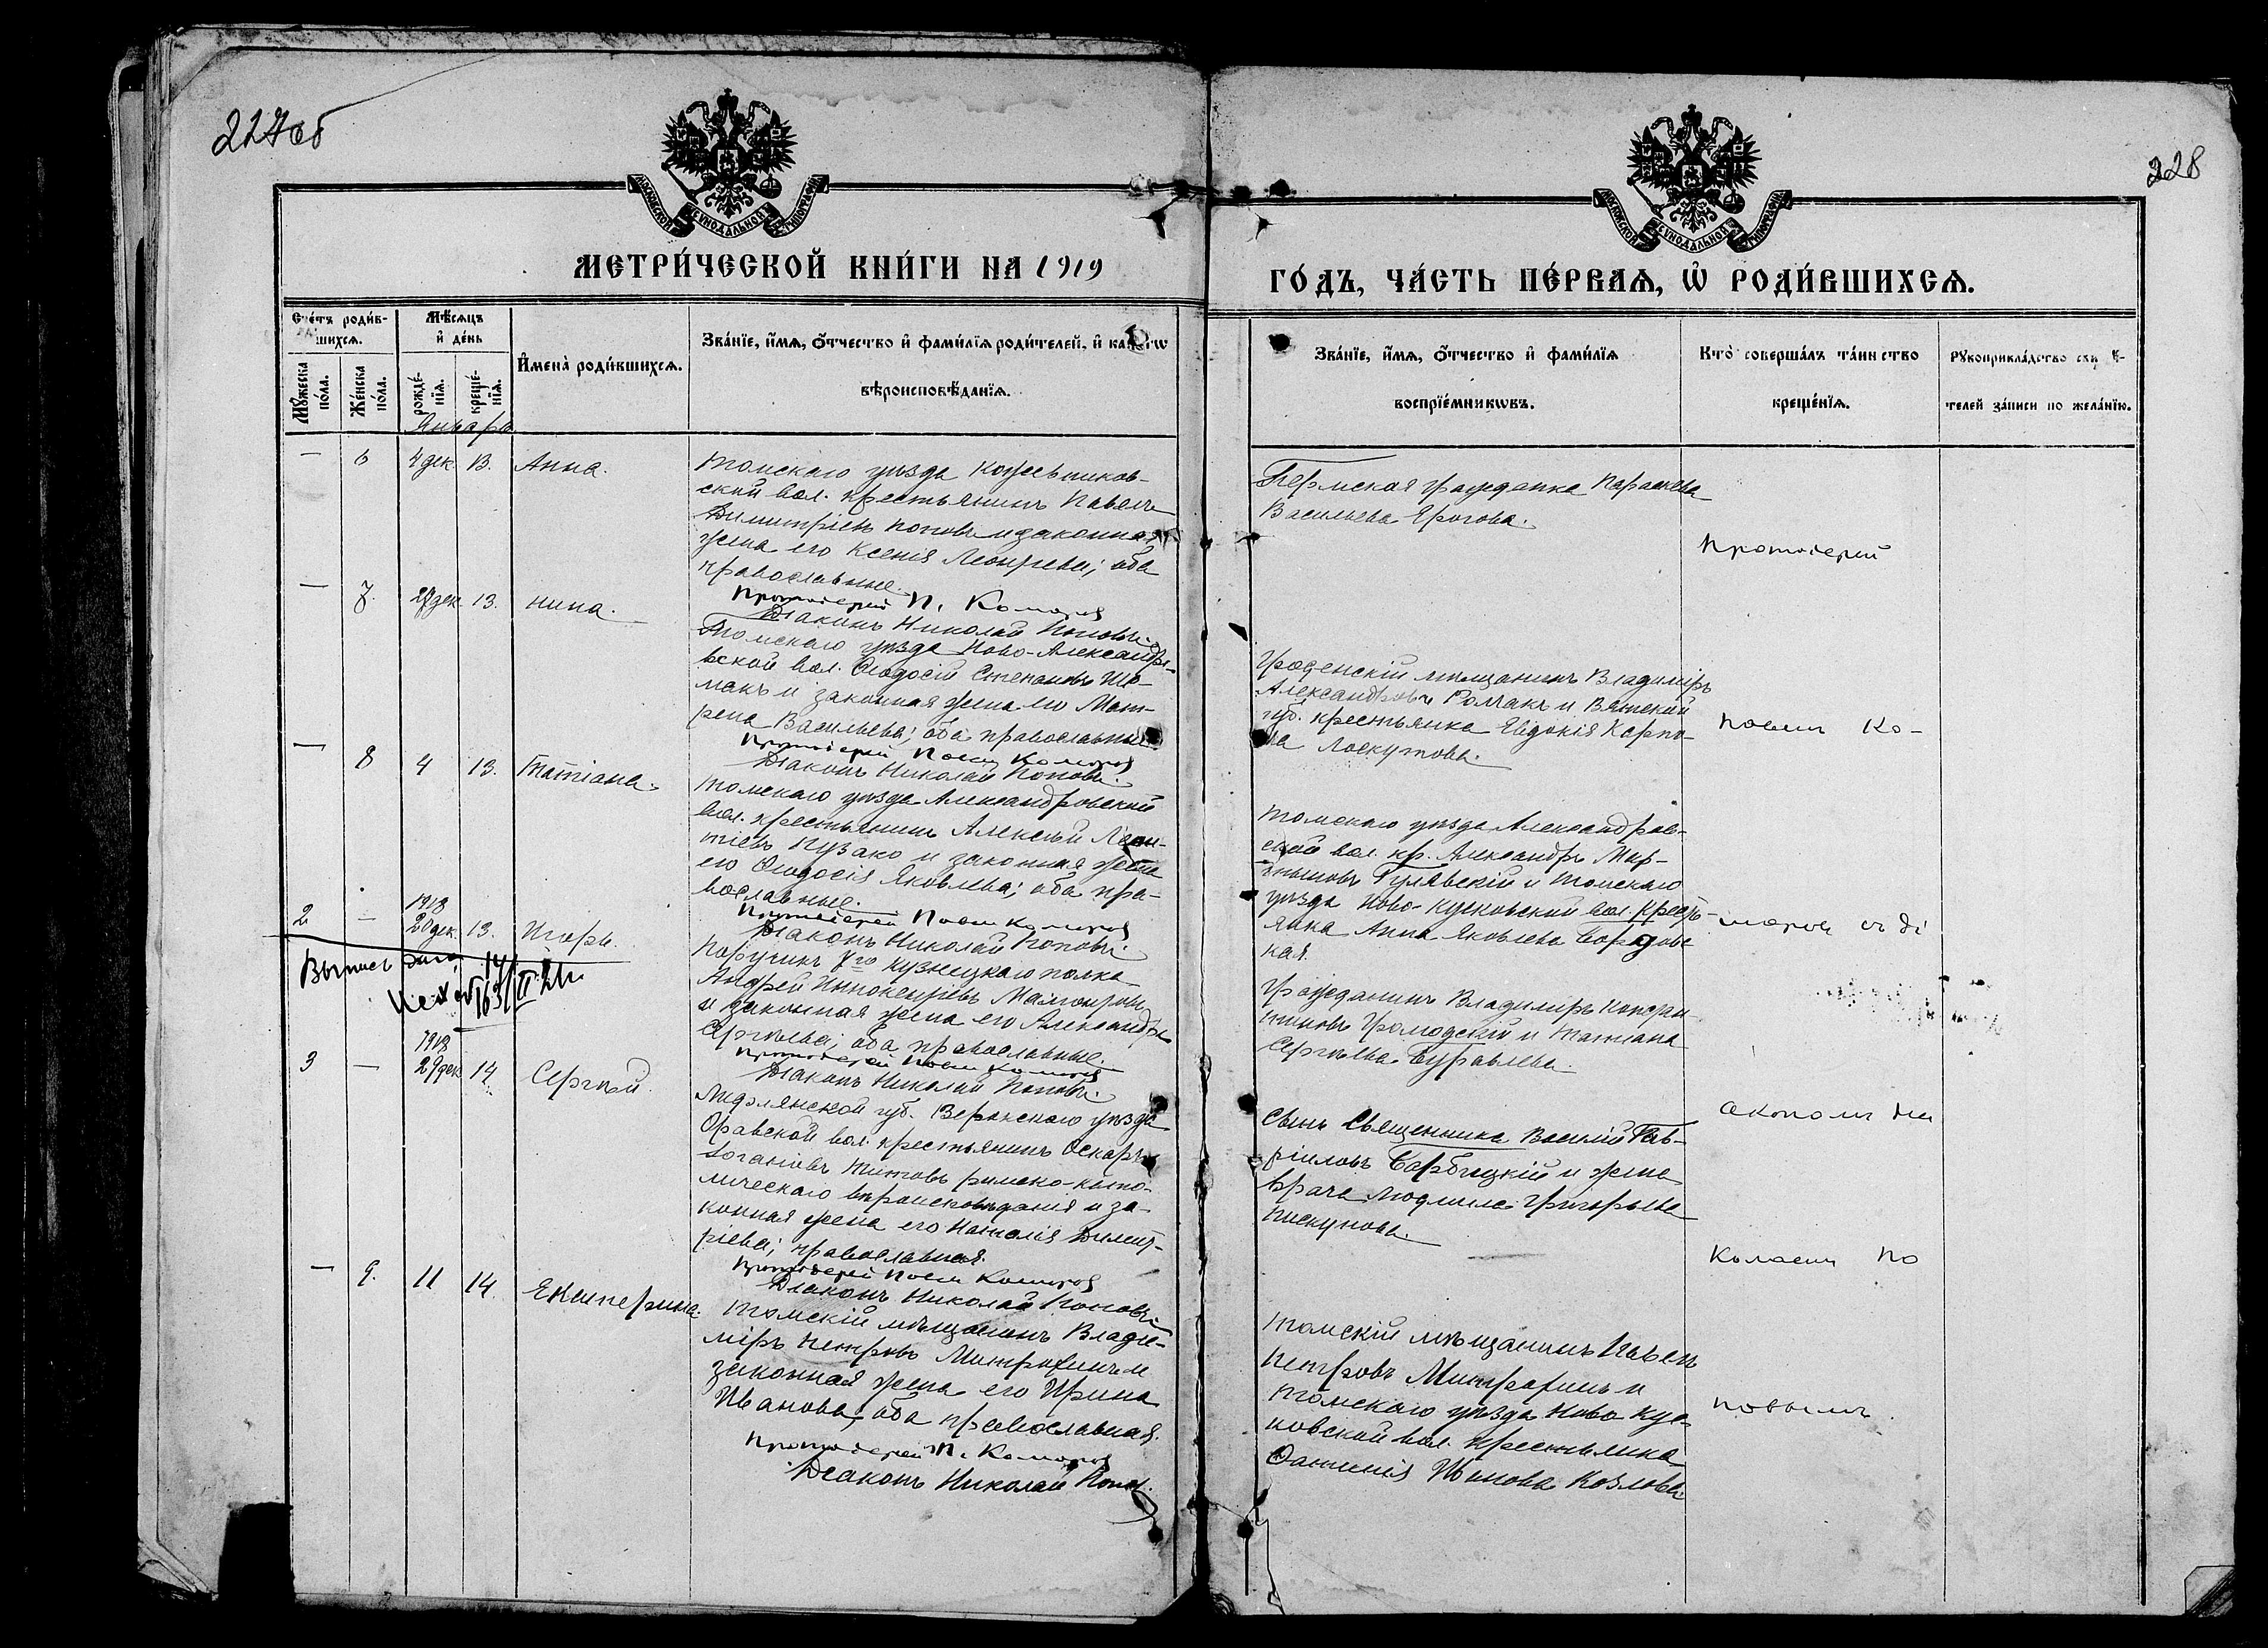 227об
228
МОСКОВСКОЙ СѴНОДАЛЬНОЙ ТИПОГРАФІИ
МОСКОВСКОЙ СѴНОДАЛЬНОЙ ТИПОГРАФІИ
МЕТРИ́ЧЕСКОЙ КНИ́ГИ НА 1919
ГО́ДЪ, ЧА́СТЬ ПЕ́РВАѦ, Ѡ҆ РОДИ́ВШИХСѦ.
Сче́тъ роди́в-
шихсѧ.
Мꙋ́жеска по́ла.
Же́нска по́ла.
Мѣ́сѧцъ и҆ де́нь
рожде́-нїѧ.
креще́-нїѧ.
И҆мена̀ роди́вшихсѧ.
Зва́нїе, и҆́мѧ, ѻ҆́тчество и҆ фами́лїѧ роди́телей, и҆ како́гѡ
вѣроисповѣ́данїѧ.
Зва́нїе, и҆́мѧ, ѻ҆́тчество и҆ фами́лїѧ
воспрїе́мникѡвъ.
Кто̀ соверша́лъ та́инство
креще́нїѧ.
телей за́писи по жела́нїю.
Январь
— 6 4 дек. 13. Анна.
Томскаго уѣзда Кожевников-
ской вол. крестьянинъ Павелъ
Димитріевъ Поповъ и законная
жена его Ксенія Леонтьева; оба
православные.
Протоіерей П. Комаров
Діаконъ Николай Поповъ.
Пермская гражданка Параскева
Васильева
Протоіерей
— 7. 28 дек. 13. Нина.
Томскаго уѣзда Ново-Александро-
вской вол. Ѳеодосій Степановъ Шо-
макъ и законная жена его Мат-
рена Васильева; оба православные
Протоіерей Поен Комаров
Діаконъ Николай Поповъ.
Гроденскій мѣщанинъ Владиміръ
Александровъ Ромакъ и Вятской
губ. крестьянка Евдокія Карпо-
ва Лоскутова.
— 8 4 13. Татіана.
Томскаго уѣзда Александровской
вол. крестьянинъ Алексѣй Леон-
тіевъ Пузако и законная жена
его Ѳеодосія Яковлева; оба пра-
вославные.
Протоіерей
Діаконъ Николай Поповъ.
Томскаго уѣзда Александров-
ской вол. кр. Александръ Мар-
тыновъ Гулявскій и Томскаго
уѣзда Ново-Кусковской вол. кресть-
янка Анна Яковлева
ская.
маров съ ді
2 — 1918 20 дек. 13. Игорь.
Поручикъ Кузнецкаго полка
Андрей Иннокентіевъ
и законная жена его Александра
Сергѣева; оба православные.
Протоіерей
Діаконъ Николай Поповъ.
Гражданинъ Владиміръ Констан-
тиновъ Громадскій и Татіана
Сергѣева Журавлева.
3 — 1918 29 дек. 14 Сергѣй.
Лифлянской губ. Верокскаго уѣзда
Оравской вол. крестьянинъ Оскаръ
Іогановъ Титовъ римско-като-
лическаго вѣроисповѣданія и за-
конная жена его Наталія Димит-
ріева; православная.
Протоіерей
Діаконъ Николай Поповъ
Сынъ священника Василій Гав-
ріиловъ и жена
врача Людмила Григорьева
Пискунова.
акономъ Ни
колаемъ По
— 9. 11 14. Екатерина.
Томскій мѣщанинъ Влади-
міръ Петровъ Митрофинъ и
законная жена его Ирина
Иванова, оба православная.
Протоіерей П. Комаров
Діаконъ Николай Попов.
Томскій мѣщанинъ Павелъ
Петровъ Митрофинъ и
Томскаго уѣзда Ново-Кус-
ковской вол. крестьянка
Иванова Козлова.
повымъ.